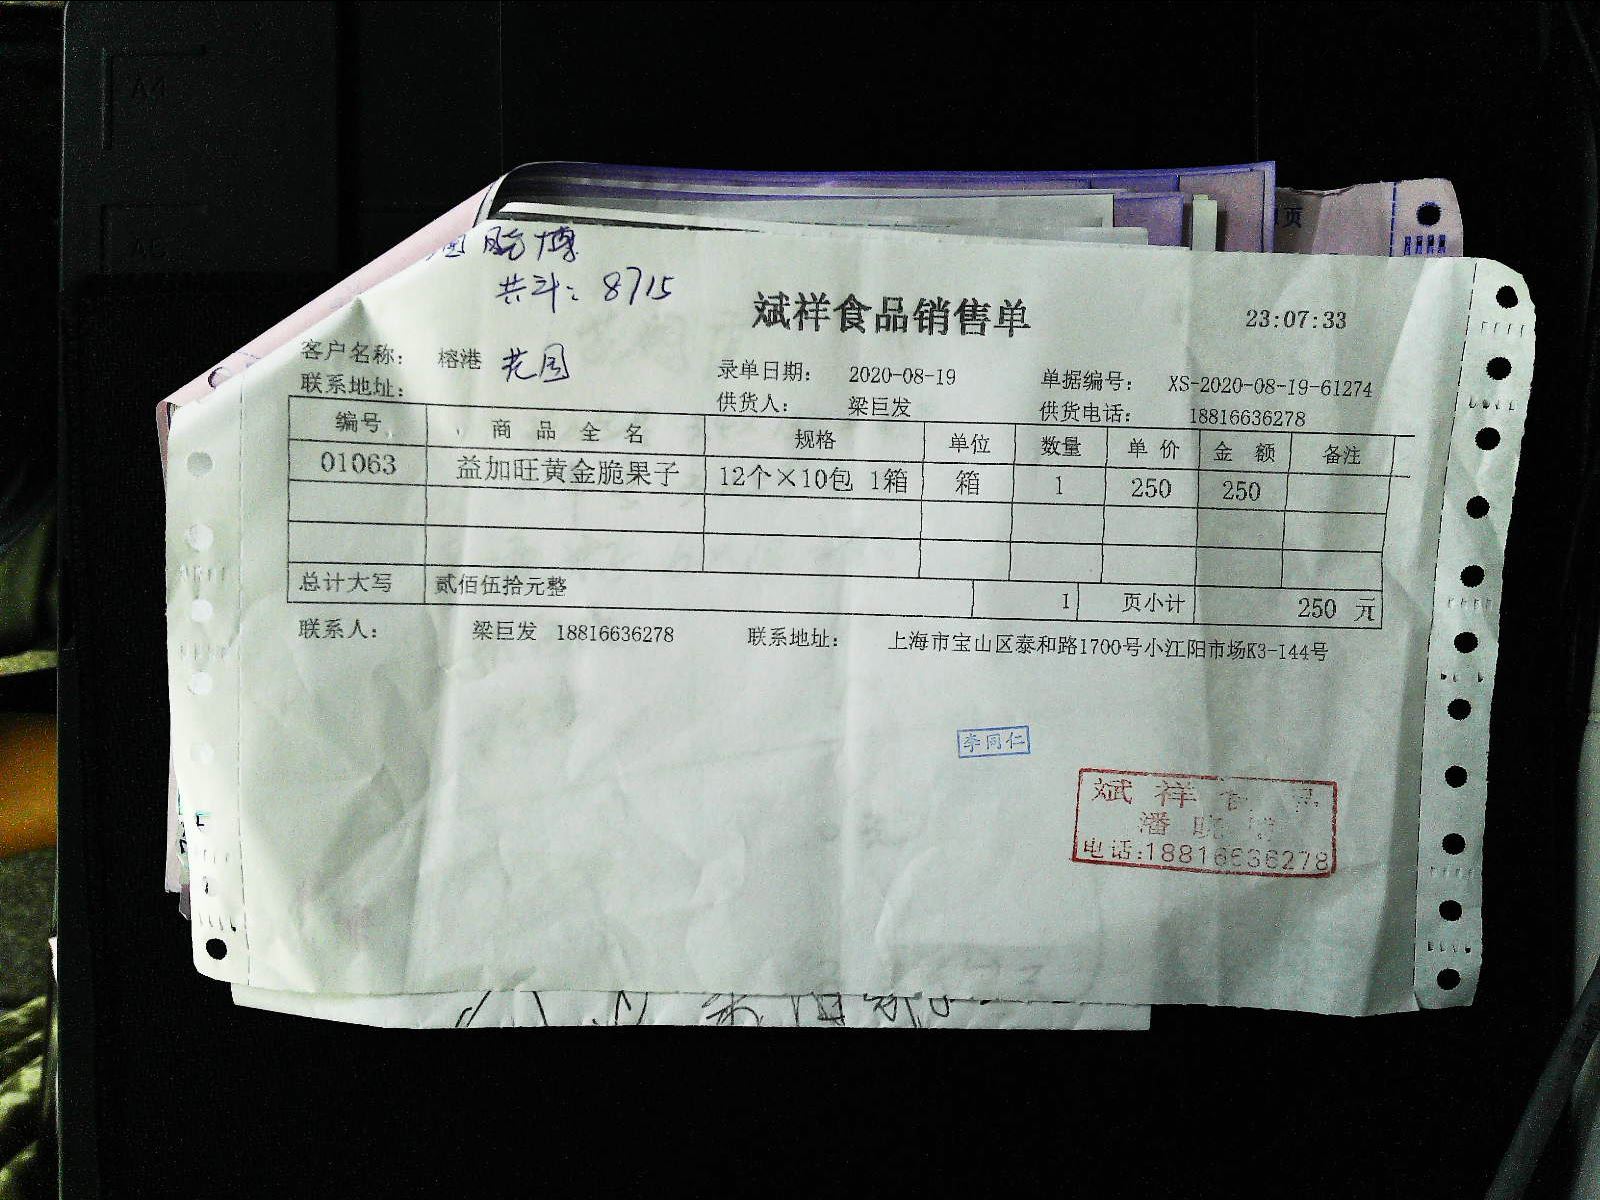 鹏博
共计：8715
斌祥食品销售单
23:07:33
客户名称： 榕港 花园 录单日期： 2020-08-19 单据编号： XS-2020-08-19-61274
联系地址： 供货人： 梁巨发 供货电话： 18816636278
编号 商品全名 规格 单位 数量 单价 金额 备注
01063 益加旺黄金脆果子 12个×10包 1箱 箱 1 250 250
总计大写 贰佰伍拾元整 1 页小计 250 元
联系人： 梁巨发 18816636278 联系地址： 上海市宝山区泰和路1700号小江阳市场K3-144号
李同仁
斌祥食品
潘
电话:18816636278
页
A4
A5